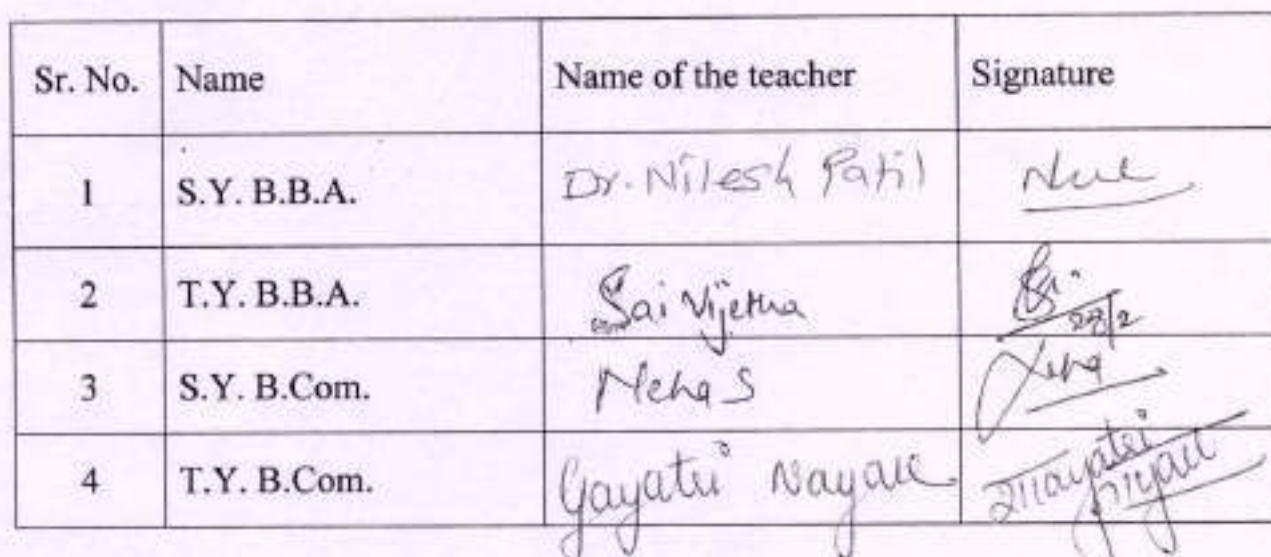 Sr. No. Name Name of the teacher Signature
1 S.Y. B.B.A. Dr. Nilesh Patil
2 T.Y. B.B.A. Sai Vijetha 28/2
3 S.Y. B.Com. Neha S Neha
4 T.Y. B.Com. Gayatri Nayak Gayatri
Nayak